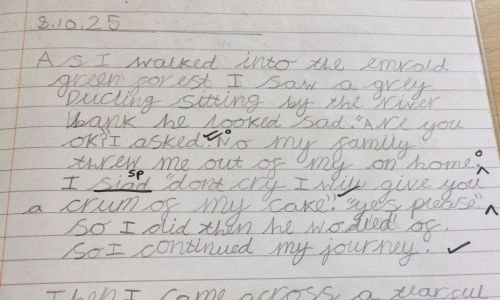 8.10.25
As I walked into the emrald
green forest I saw a grey
Ducling sitting by the river
bank he looked sad. "Are you
ok?" I asked. No my family
threw me out of my on home.
sp
I siad "dont cry I will give you
a crum of my cake". "yes please"
So I did then he wodled of.
So I continued my journey.
Then I came across a tearful